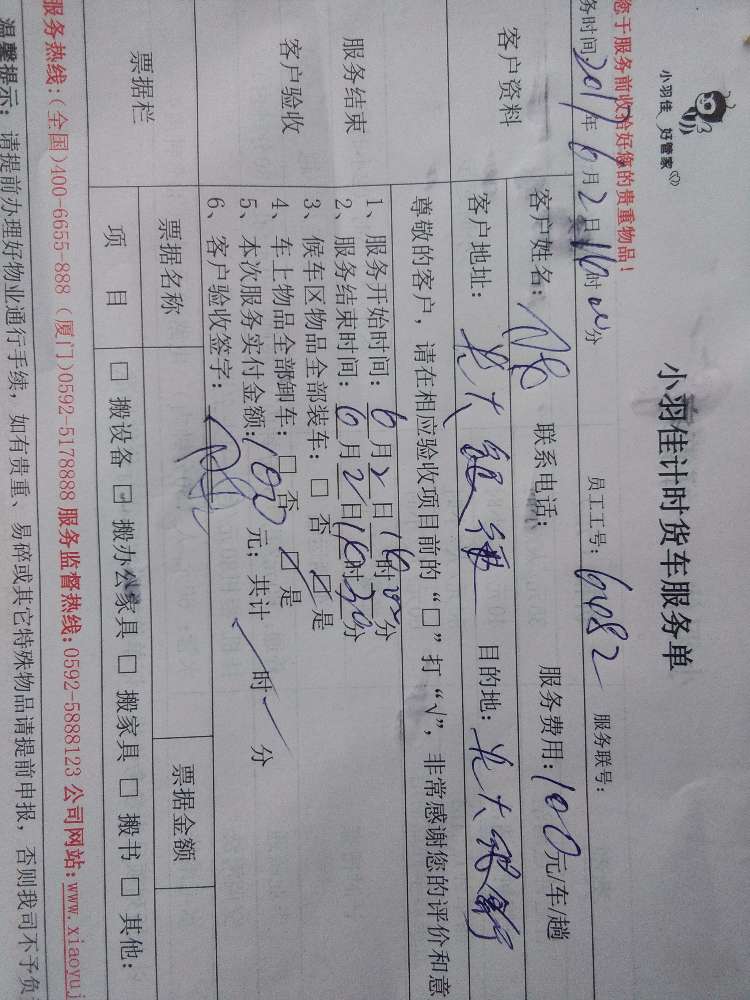 小羽佳 好管家
小羽佳计时货车服务单
您于服务前收拾好您的贵重物品！
务时间2017年6月2日16时00分 员工工号：6482 服务联号：
客户资料
客户姓名： 联系电话： 服务费用：100元/车/趟
客户地址：光大银行 目的地：光大银行
尊敬的客户，请在相应验收项目前的“□”打“√”，非常感谢您的评价和意
服务结束
客户验收
1、服务开始时间：6月2日16时00分
2、服务结束时间：6月2日16时30分
3、候车区物品全部装车：□ 否 ☑是
4、车上物品全部卸车：□ 否 ☑是
5、本次服务实付金额：100元；共计 时 分
6、客户验收签字：
票据栏
票据名称 票据金额
项 目 □ 搬设备 □ 搬办公家具 □ 搬家具 □ 搬书 □ 其他：
服务热线：（全国）400-6655-888（厦门）0592-5178888 服务监督热线：0592-5888123 公司网站：www.xiaoyuj
温馨提示：请提前办理好物业通行手续，如有贵重、易碎或其它特殊物品请提前申报，否则我司不予负